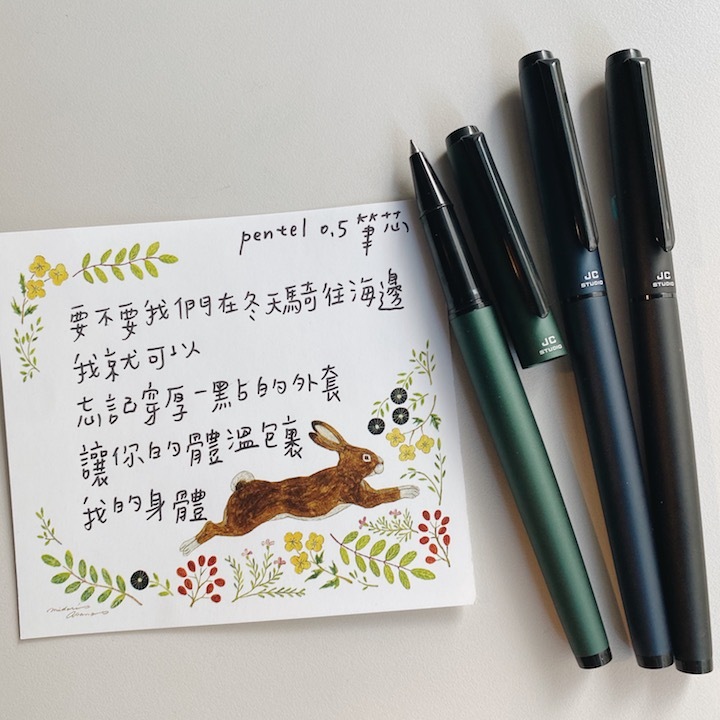 pentel 0.5 筆芯
要不要我們在冬天騎往海邊
我就可以
忘記穿厚一點的外套
讓你的體溫包裹
我的身體
JC
STUDIO
JC
STUDIO
JC
STUDIO